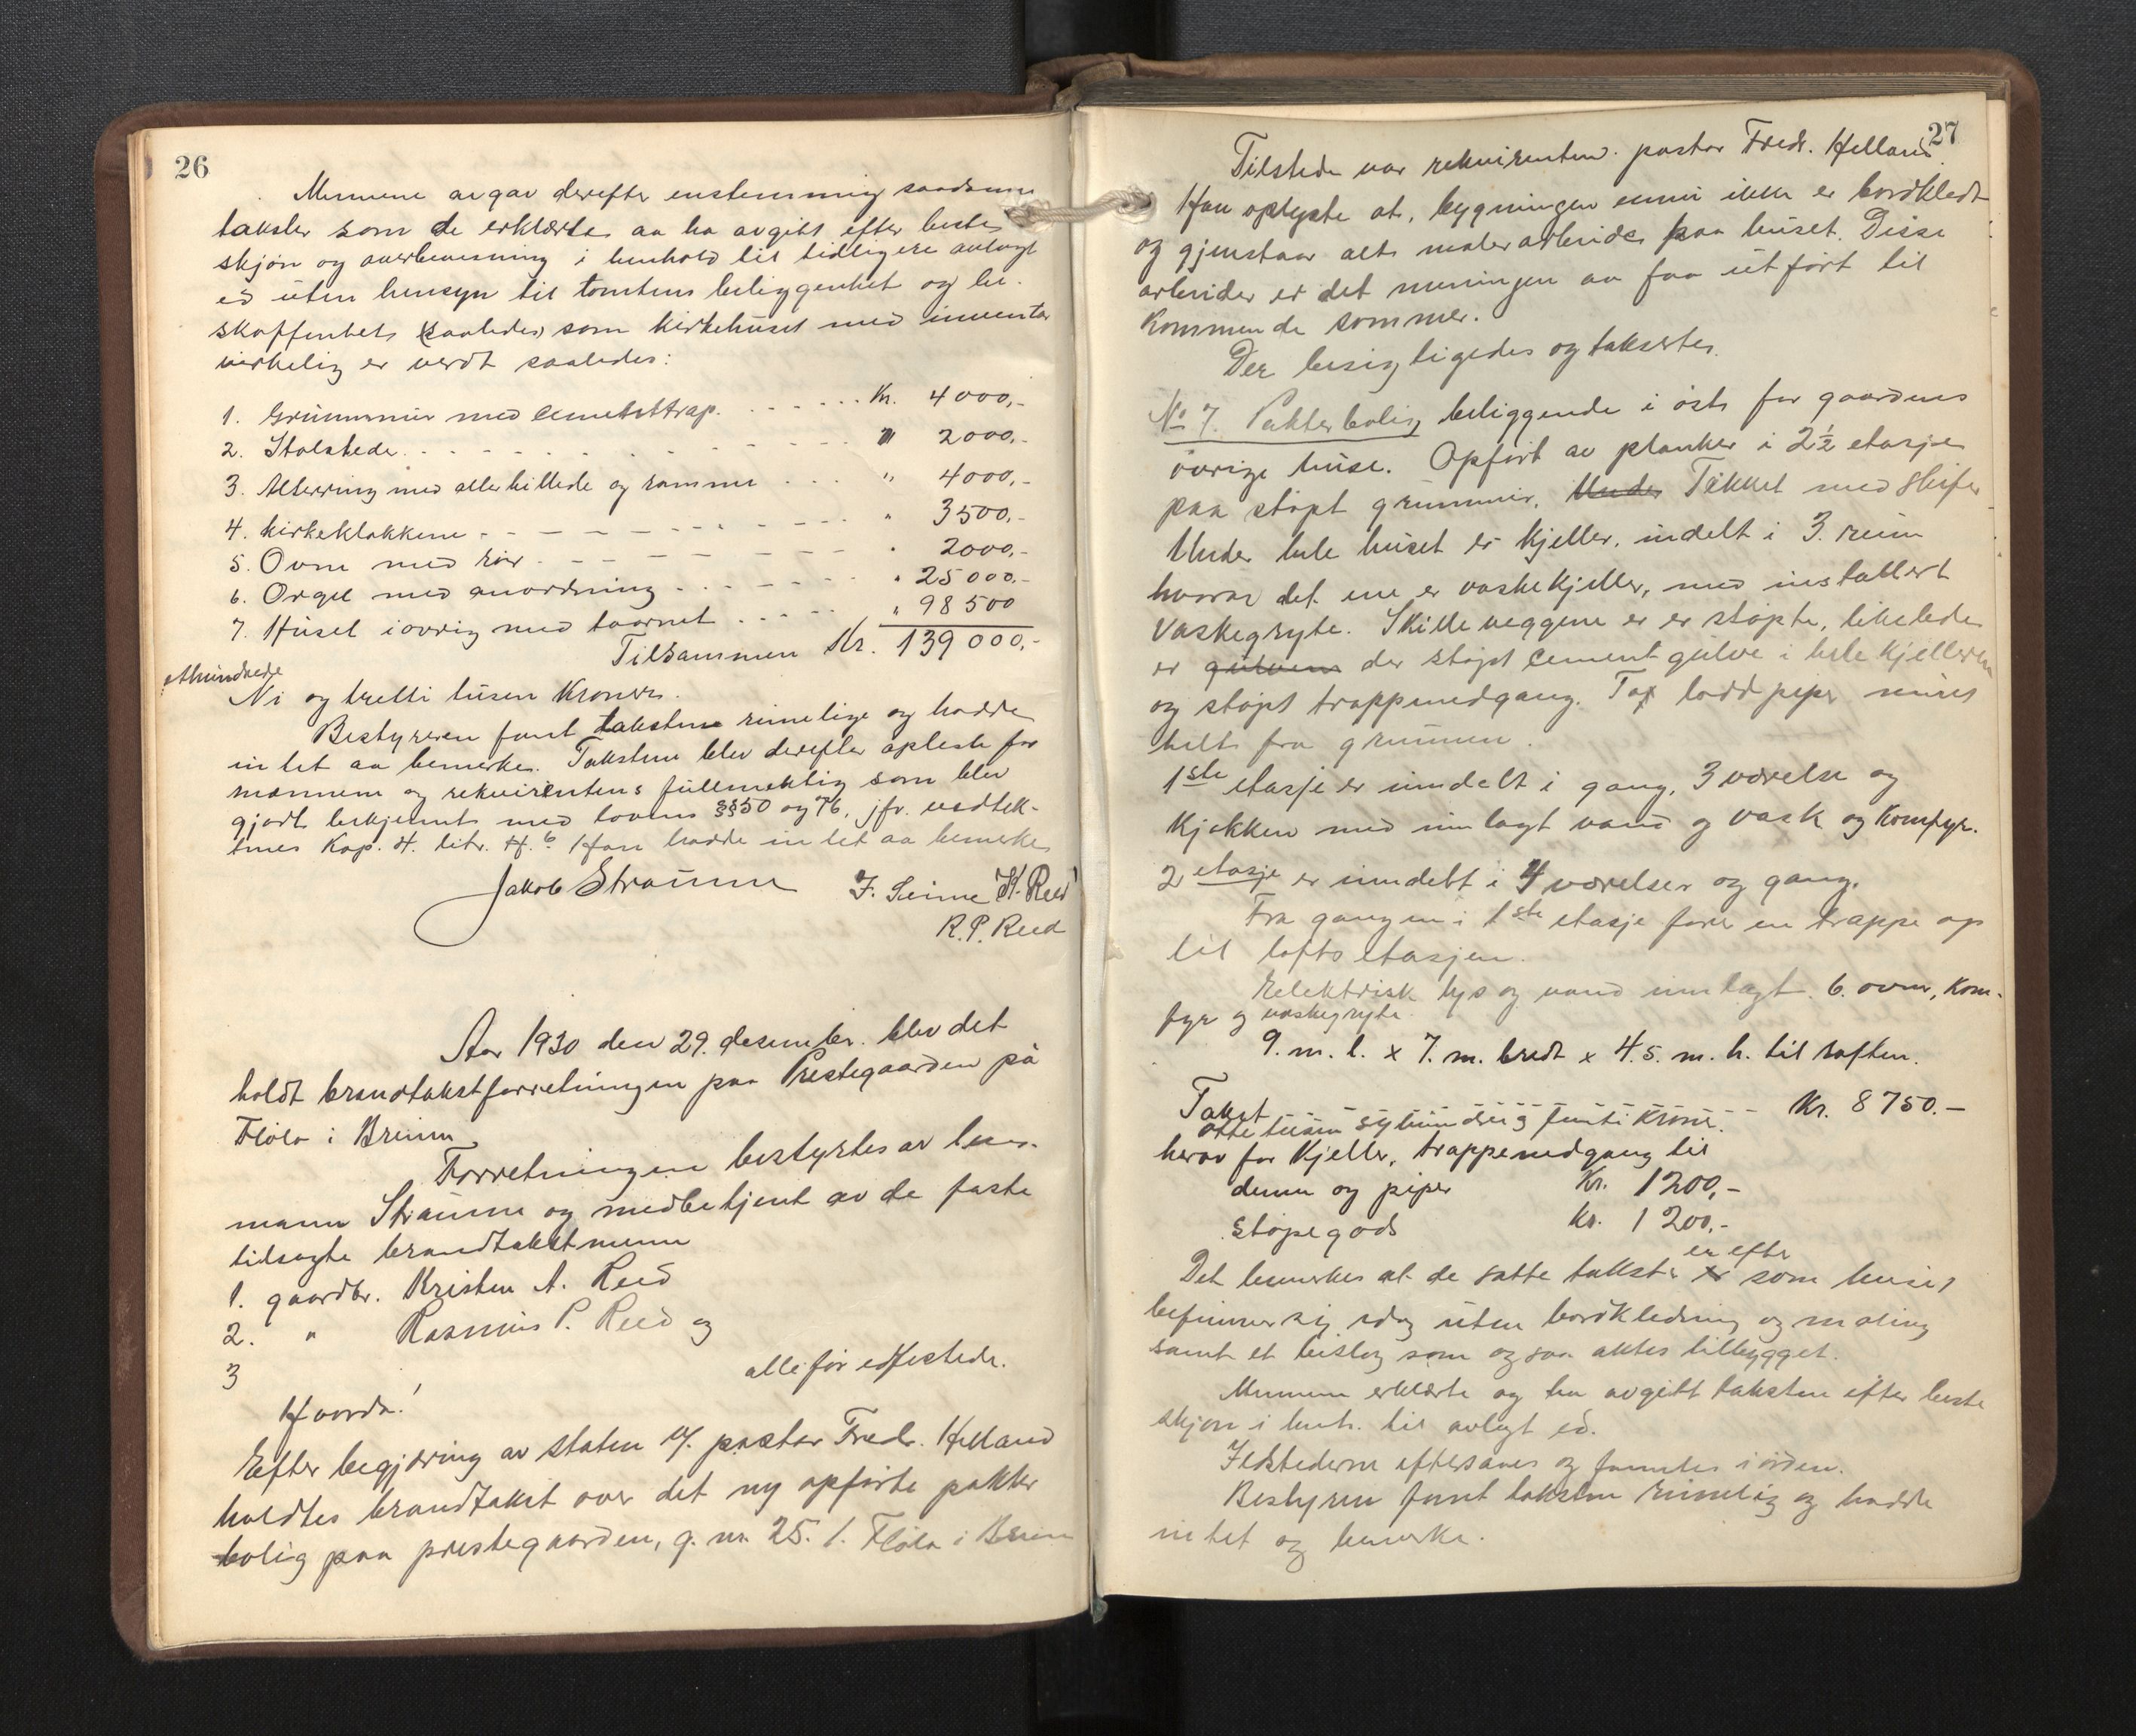 26
Mennene avgav derefter enstemmig saadanne
takster som de erklærte aa ha avgitt efter beste
skjøn og overbevisning i henhold til tidligere avlagt
ed uten hensyn til tomtens beliggenhet og be-
skaffenhet (saaledes) som kirkehuset med inventar
virkelig er verdt saaledes:
1. Grunnmur med cementtrap. . . . . . . Kr. 4000,-
2. Stolstede. - - - - - - - - " 2000,-
3. Alterring med alterbillede og ramme . . . " 4000,-
4. Kirkeklokkene - - - - - - - - " 3500,-
5. Ovne med rør - - - - - - - " 2000,-
6. Orgel med anordning - - - - - " 25000.-
7. Huset iøvrig med taarnet . . . - - " 98500
Tilsammen Kr. 139000,-
ethundrede
Ni og tretti tusen Kroner.
Bestyreren fant takstene rimelige og hadde
intet aa bemerke. Takstene blev derefter oplest for
mennene og rekvirentens fullmektig som blev
gjort bekjennt med lovens §§50 og 76, jfr. vedtek-
tenes Kap. 4. litr. H. 6 Han hadde intet aa bemerke
Jakob Straume F. Seime K. Reed
R. P. Reed
Aar 1930 den 29. desember. blev det
holdt brandtakstforretningen paa Prestegaarden på
Fløla i Breim
Forretningen bestyrtes av lens-
mann Straume og medbetjent av de faste
tilsagte brandtakstmenn
1. gaardbr. Kristen A. Reed
2. " Rasmus P. Reed og
3 alle før edfestede.
Hvorda!
Efter begjæring av staten v/. pastor Fredr. Helland
holdtes brandtakst over det ny opførte pakter
bolig paa prestegaarden, g. nr. 25. 1. Fløla i Breim
27
Tilstede var rekvirenten. pastor Fredr. Helland.
Han oplyste at, bygningen ennu ikke er bordkledt
og gjenstaar alt malerarbeide paa huset. Disse
arbeider er det meningen aa faa utført til
kommende sommer.
Der besigtigedes og taksertes.
No 7. Pakterbolig beliggende i øst for gaardens
øvrige huse. Opført av planker i 2½ etasje
paa støpt grunmur, Under Tækket med skifer
Under hele huset er kjeller, indelt i 3. rum
hvorav det ene er vaskekjeller, med installert
vaskegryte. Skilleveggene er er støpte, likelede
er gulvene der støpt cement gulve i hele kjelleren
og støpt trappenedgang. To lødd piper muret
helt fra grunnen.
1ste etasje er inndelt i gang, 3 værelse og
kjøkken med innlagt vand og vask og komfyr.
2 etasje er inndelt i 4 værelser og gang.
Fra gangen i 1ste etasje fører en trappe op
til loftsetasjen.
Elektrisk lys og vand innlagt. 6. ovner, kom-
fyr og vaskegryte.
9. m. l. x 7. m. bredt x 4.5. m. h. til raften.
Takst - - - - - - - - Kr. 8750.-
otte tusen syvhundre og femti kroner.
herav for kjeller, trappenedgang til
denne og piper Kr. 1200,-
støpegods Kr. 1200,-
er efter
Det bemerkes at de satte takster er som huset
befinner sig idag uten bordkledning og maling
samt et bislag som ogsaa aktes tilbygget.
Mennene erklærte og ha avgitt taksten efter beste
skjøn i henh. til avlagt ed.
Ildstederne eftersaaes og fanntes i orden.
Bestyren fant taksten rimelig og hadde
intet og bemerke.